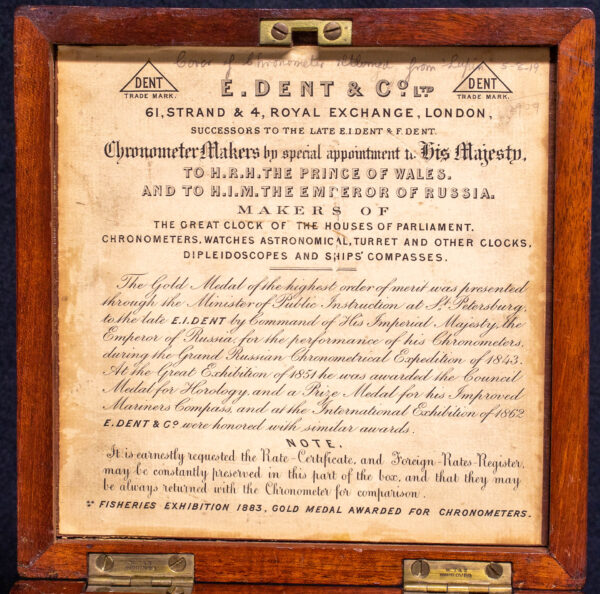 Cover of Chronometer returned from 5-6-19
DENT
TRADE MARK.
DENT
TRADE MARK.
E. DENT & Co. LTD
61, STRAND & 4, ROYAL EXCHANGE, LONDON,
SUCCESSORS TO THE LATE E.I DENT & F. DENT.
Chronometer Makers by special appointment to His Majesty,
TO H.R.H. THE PRINCE OF WALES.
AND TO H.I.M. THE EMPEROR OF RUSSIA.
MAKERS OF
THE GREAT CLOCK OF THE HOUSES OF PARLIAMENT.
CHRONOMETERS, WATCHES ASTRONOMICAL, TURRET AND OTHER CLOCKS,
DIPLEIDOSCOPES AND SHIPS' COMPASSES.
The Gold Medal of the highest order of merit was presented
through the Minister of Public Instruction at St. Petersburg,
to the late E.I.DENT by Command of His Imperial Majesty, the
Emperor of Russia, for the performance of his Chronometers,
during the Grand Russian Chronometrical Expedition of 1843.
At the Great Exhibition of 1851 he was awarded the Council
Medal for Horology, and a Prize Medal for his Improved
Mariners Compass, and at the International Exhibition of 1862
E. DENT & Co. were honored with similar awards.
NOTE.
It is earnestly requested the Rate-Certificate, and Foreign-Rates-Register,
may be constantly preserved in this part of the box, and that they may
be always returned with the Chronometer for comparison.
FISHERIES EXHIBITION 1883, GOLD MEDAL AWARDED FOR CHRONOMETERS.